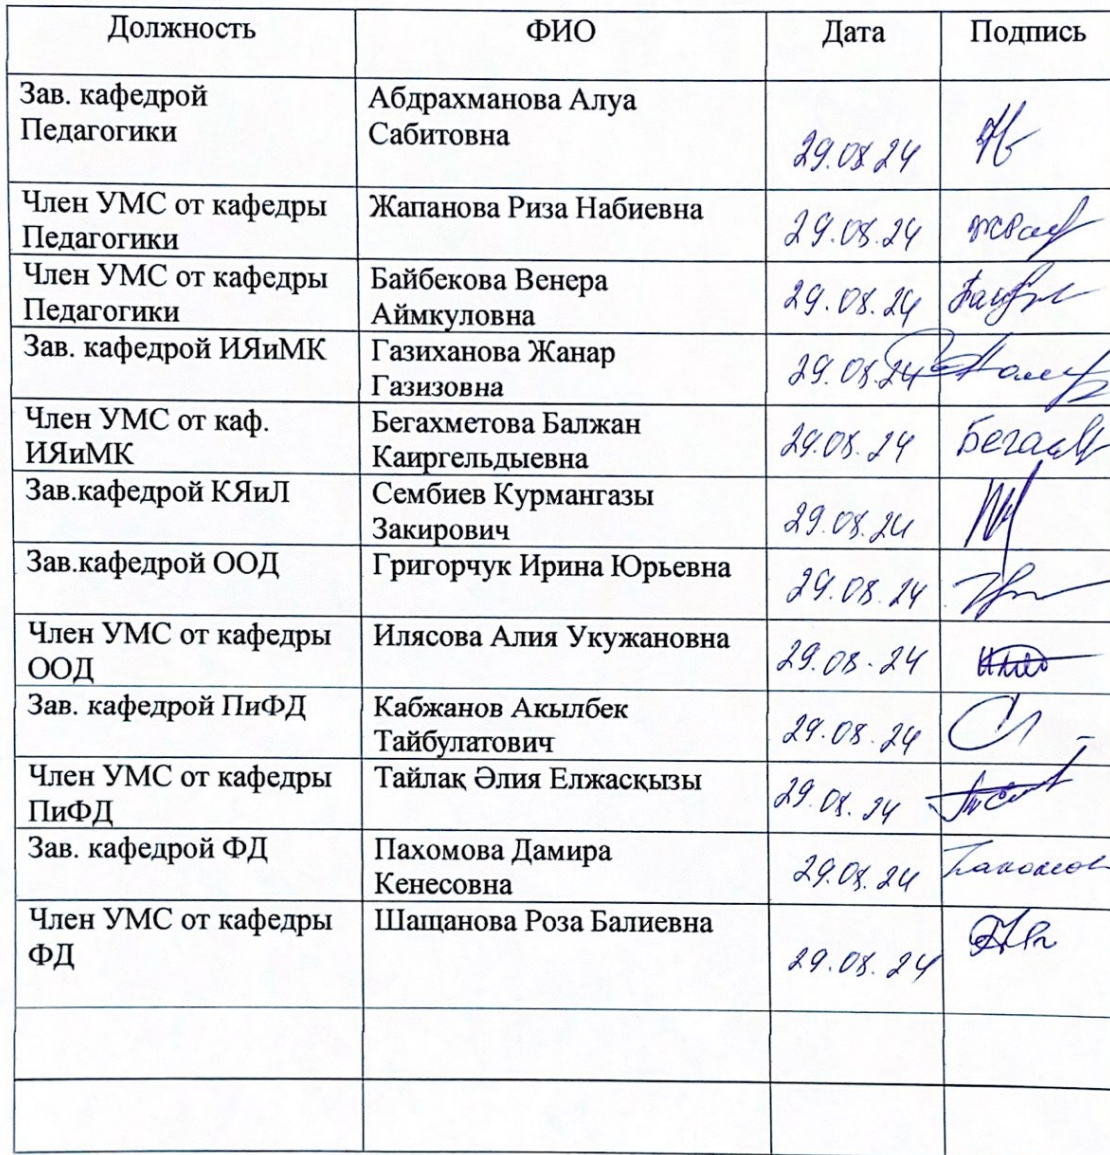 Должность ФИО Дата Подпись
Зав. кафедрой Абдрахманова Алуа
Педагогики Сабитовна 29.08.24
Член УМС от кафедры Жапанова Риза Набиевна
Педагогики 29.08.24
Член УМС от кафедры Байбекова Венера
Педагогики Аймкуловна 29.08.24
Зав. кафедрой ИЯиМК Газиханова Жанар
Газизовна 29.08.24
Член УМС от каф. Бегахметова Балжан
ИЯиМК Каиргельдыевна 29.08.24
Зав.кафедрой КЯиЛ Сембиев Курмангазы
Закирович 29.08.24
Зав.кафедрой ООД Григорчук Ирина Юрьевна
29.08.24
Член УМС от кафедры Илясова Алия Укужановна
ООД 29.08.24
Зав. кафедрой ПиФД Кабжанов Акылбек
Тайбулатович 29.08.24
Член УМС от кафедры Тайлақ Әлия Елжасқызы
ПиФД 29.08.24
Зав. кафедрой ФД Пахомова Дамира
Кенесовна 29.08.24
Член УМС от кафедры Шащанова Роза Балиевна
ФД 29.08.24